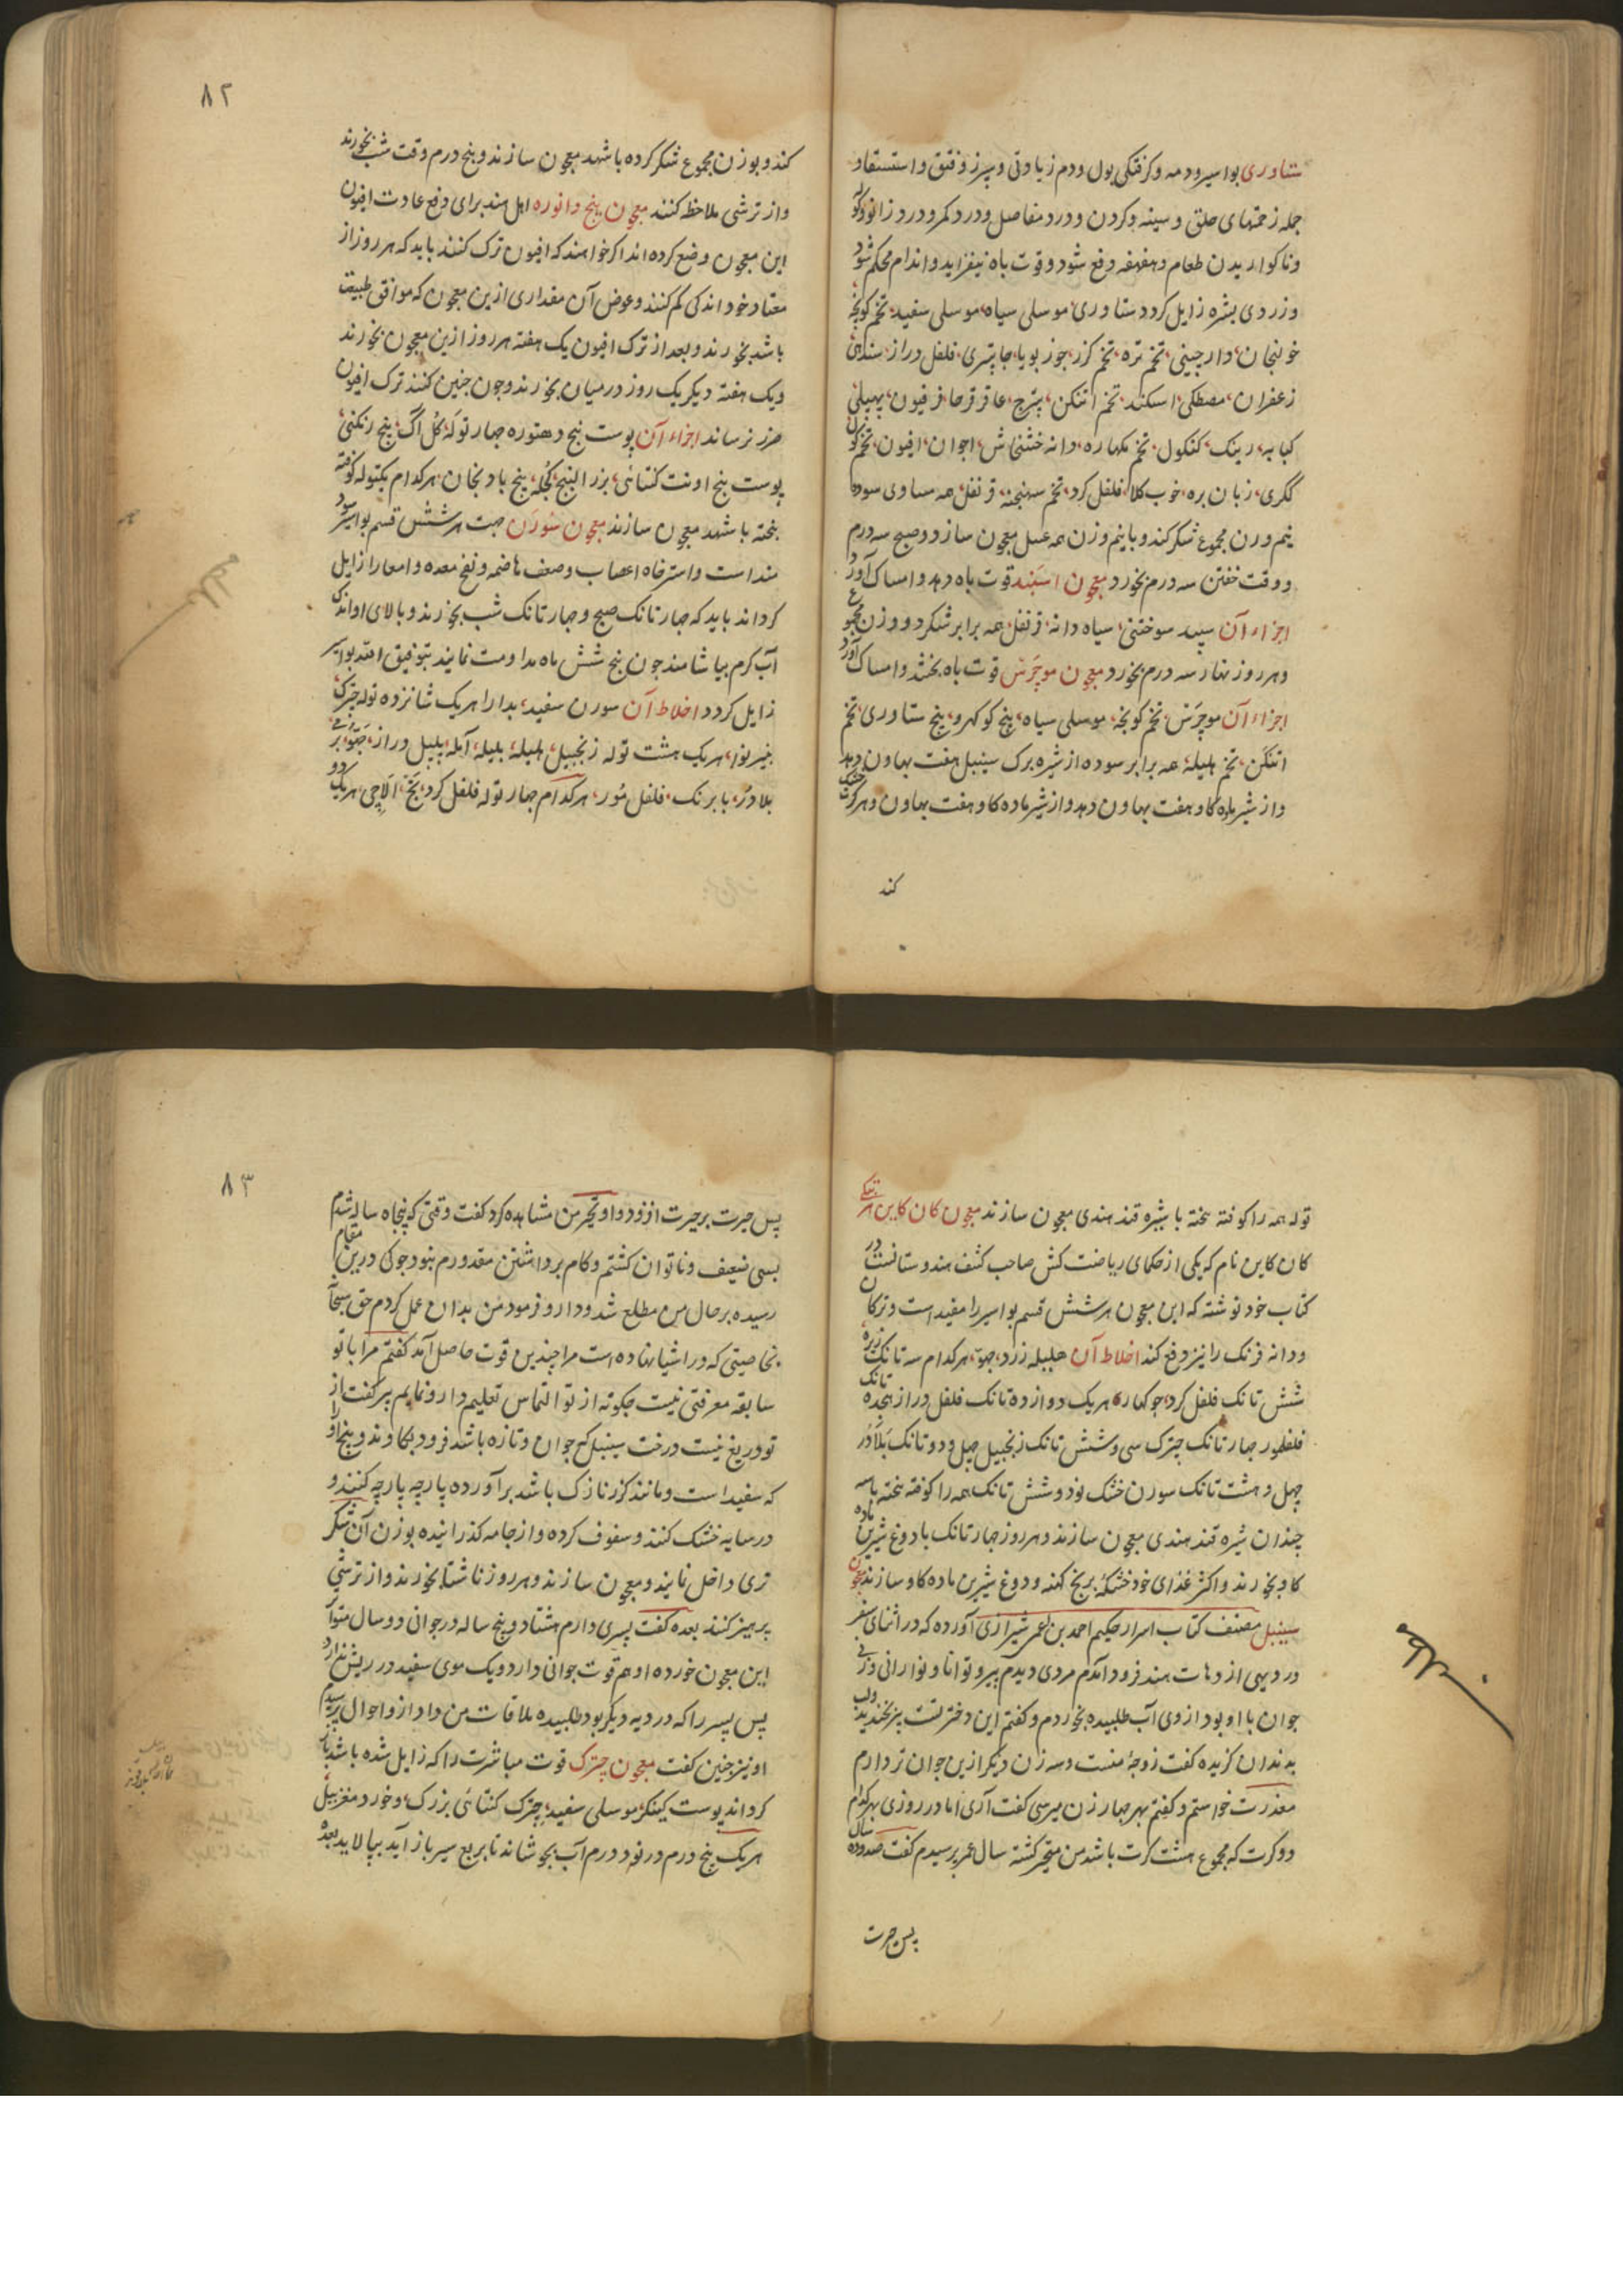 ستاوری بواسیر و دمه و کرفتکی بول و دم زیادتی و سپرز و فتق و استسقا و
جمله زحمتهای حلق و سینه و کردن و درد مفاصل و درد کمر و درد زانو و
و ناکواریدن طعام و هفهفه دفع شود و قوت باه بیفزاید و اندام محکم شود
و زردی بشره زایل کردد ستاوری موسلی سیاه موسلی سفید تخم کونچه
خولنجان دارچینی تخم تره تخم کزر جوز بویا جاپتری فلفل دراز
زعفران مصطکی اسکند تخم اتنکن عاقرقرحا فرفیون
کبابه رینک کنکول تخم مکهاره دانه خشخاش اجوان افیون تخم
ککری زبان بره خوب کلا فلفل کرد تخم سهنجنه قرنفل همه مساوی سوده
نیم وزن مجموع شکر کند و با نیم وزن همه عسل معجون سازد و صبح سه درم
و وقت خفتن سه درم بخورد معجون اسپند قوت باه دهد و امساک آورد
اجزاء آن سپند سوختنی سیاه دانه قرنفل همه برابر شکر دو وزن مجموع
و هر روز نهار سه درم بخورد معجون موچرس قوت باه بخشد و امساک آورد
اجزاء آن موچرس تخم کونچه موسلی سیاه بیخ کوکهرو بیخ ستاوری تخم
اتنکن تخم هلیله همه برابر سوده از شیره برک سینبل هفت بهاون دهد
و از شیر ماده کاو هفت بهاون دهد و از شیر ماده کاو هفت بهاون و هر کرت خشک
کند
۸۲
کند و بوزن مجموع شکر کرده با شهد معجون سازند و پنج درم وقت شب بخورند
و از ترشی ملاحظه کنند معجون بیخ دانوره اهل هند برای دفع عادت افیون
این معجون وضع کرده اند اکر خواهند که افیون ترک کنند باید که هر روز از
معتاد خود اندکی کم کنند و عوض آن مقداری ازین معجون که موافق طبیعت
باشد بخورند و بعد از ترک افیون یک هفته هر روز ازین معجون بخورند
و یک هفته دیکر یک روز درمیان بخورند و چون چنین کنند ترک افیون
ضرر نرساند اجزاء آن پوست بیخ دهتوره چهار توله کل اک بیخ رنکنی
پوست بیخ اونت کتائی بزر البنج کچله بیخ بادنجان هر کدام یکتوله کوفته
بیخته با شهد معجون سازند معجون سورن جهت هر شش قسم بواسیر سود
منداست و استرخاء اعصاب و ضعف هاضمه و نفخ معده و امعا را زایل
کرداند باید که چهار تانک صبح و چهار تانک شب بخورند و بالای او اندک
آب کرم بیاشامند چون پنج شش ماه مداومت نمایند بتوفیق الله بواسیر
زایل کردد اخلاط آن سورن سفید بدارا هر یک شانزده توله چترک
هر یک هشت توله زنجبیل هلیله بلیله آمله پیپل دراز
بلادر بابرنک فلفل مور هر کدام چهار توله فلفل کرد الاچی هر یک دو
توله همه را کوفته بیخته با شیره قند هندی معجون سازند معجون کان کاین
کان کاین نام که یکی از حکمای ریاضت کش صاحب کشف هندوستانست در
کتاب خود نوشته که این معجون هر شش قسم بواسیر را مفید است و ترکان
و دانه فرنک را نیز دفع کند اخلاط آن هلیله زرد هر کدام سه تانک زیره
شش تانک فلفل کرد جوکهار هر یک دوازده تانک فلفل دراز هیجده تانک
فلفلمور چهار تانک چترک سی و شش تانک زنجبیل چهل و دو تانک بلادر
چهل و هشت تانک سورن خشک نود و شش تانک همه را کوفته بیخته با سه
چندان شیره قند هندی معجون سازند و هر روز چهار تانک با دوغ شیرین ماده
کاو بخورند و اکثر غذای خود خشکه برنج کهنه و دوغ شیرین ماده کاو سازند معجون
سینبل مصنف کتاب اسرار حکیم احمد بن عمر شیرازی آورده که در اثنای سفر
در دیهی از دهات هند فرود آمدم مردی دیدم پیر و توانا و نورانی و زنی
جوان با او بود از وی آب طلبیده بخوردم و کفتم این دختر تست پیر بخندید و لب
بدندان کزیده کفت زوجه منست و سه زن دیکر ازین جوان تر دارم
معذرت خواستم و کفتم بهر چهار زن میرسی کفت آری اما در روزی بهر کدام
دو کرت که مجموع هشت کرت باشد من متحیر کشته سال عمر پرسیدم کفت صد و ده سال
پس حیرت
۸۳
پس حیرت بر حیرت افزود و او تحیر من مشاهده کرد کفت وقتی که پنجاه ساله شدم
بسی ضعیف و ناتوان کشتم و کام برداشتن مقدورم نبود جوکی درین مقام
رسیده بر حال من مطلع شد و دارو فرمود من بدان عمل کردم حق سبحانه
بخاصیتی که در اشیا نهاده است مرا چندین قوت حاصل آمد کفتم مرا با تو
سابقه معرفتی نیست چکونه از تو التماس تعلیم دارو نمایم پیر کفت از
تو دریغ نیست درخت سینبل که جوان و تازه باشد فرود بکاوند و بیخ او را
که سفید است و مانند کزر نازک باشد برآورده پارچه پارچه کنند و
در سایه خشک کنند و سفوف کرده و از جامه کذرانیده بوزن آن شکر
تری داخل نمایند و معجون سازند و هر روز ناشتا بخورند و از ترشی
پرهیز کنند بعده کفت پسری دارم هشتاد و پنج ساله در جوانی دو سال متواتر
این معجون خورده او هم قوت جوانی دارد و یک موی سفید در ریش ندارد
پس پسر را که در دیه دیکر بود طلبیده ملاقات من داد از و احوال پرسیدم
او نیز چنین کفت معجون چترک قوت مباشرت را که زایل شده باشد باز
کرداند پوست کینکر موسلی سفید چترک کتائی بزرک و خورد مغز بیل
هر یک پنج درم در نود درم آب بجوشاند تا بربع سیر باز آید بپالاید بعده